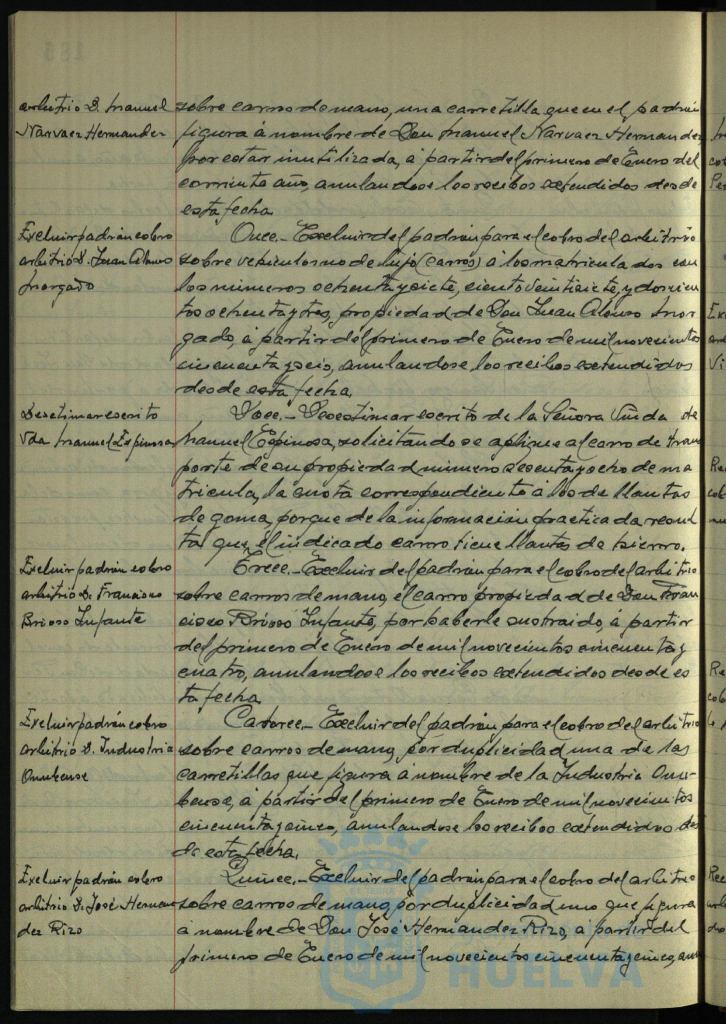 arbitrio D. Manuel
Narvaez Hernandez
sobre carros de mano, una carretilla que en el padrón
figura á nombre de Don Manuel Narvaez Hernandez
por estar inutilizada, á partir del primero de Enero del
corriente año, anulandose los recibos extendidos desde
esta fecha.
Excluir padrón cobro
arbitrio D. Juan Alonso
Morgado
Once.- Excluir del padrón para el cobro del arbitrio
sobre vehiculos no de lujo (carros) á los matriculados con
los numeros ochenta y siete, ciento veintisiete, y doscien
tos ochenta y tres, propiedad de Don Juan Alonso Mor
gado, á partir del primero de Enero de mil novecientos
cincuenta y seis, anulandose los recibos extendidos
desde esta fecha.
Desestimar escrito
Vda Manuel Espinosa
Doce.- Desestimar escrito de la Señora Viuda de
Manuel Espinosa, solicitando se aplique al carro de trans
porte de su propiedad número sesenta y ocho de ma
tricula, la cuota correspondiente á los de llantas
de goma, porque de la información practicada resul
ta que el indicado carro tiene llantas de hierro.
Excluir padrón cobro
arbitrio D. Francisco
Brioso Infante
Trece.- Excluir del padrón para el cobro del arbitrio
sobre carros de mano, el carro propiedad de Don Fran
cisco Brioso Infante, por haberle sustraido, á partir
del primero de Enero de mil novecientos cincuenta y
cuatro, anulandose los recibos extendidos desde es
ta fecha.
Excluir padrón cobro
arbitrio D. Industria
Onubense
Catorce.- Excluir del padrón para el cobro del arbitrio
sobre carros de mano, por duplicidad una de las
carretillas que figura á nombre de la Industria Onu-
bense, á partir del primero de Enero de mil novecientos
cincuenta y cinco, anulandose los recibos extendidos des
de esta fecha.
Excluir padrón cobro
arbitrio D. José Hernan
dez Rizo
Quince.- Excluir del padrón para el cobro del arbitrio
sobre carros de mano, por duplicidad uno que figura
á nombre de Don José Hernandez Rizo, á partir del
primero de Enero de mil novecientos cincuenta y cinco, anu
HUELVA